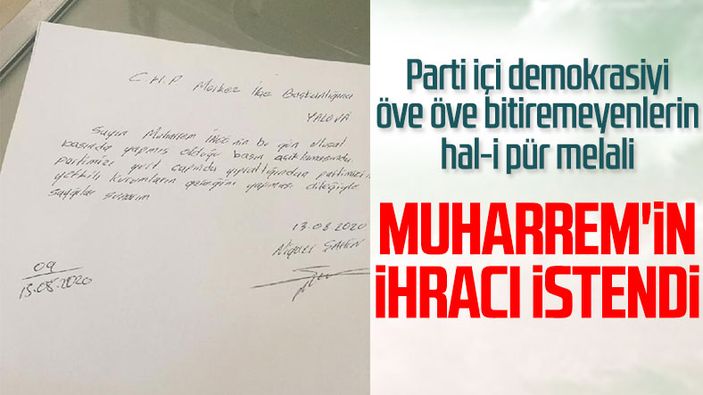 C.H.P Merkez İlçe Başkanlığına
YALOVA
Sayın Muharrem İNCE'nin bu gün ulusal
basında yapmış olduğu basın açıklamasında
partimizi yurt çapında yıprattığından partimizin
yetkili kurumların gereğini yapması dileğiyle
saygılar sunarım
13.08.2020
ŞAHİN
09
13.08.2020
Parti içi demokrasiyi
öve öve bitiremeyenlerin
hal-i pür melali
MUHARREM'İN
İHRACI İSTENDİ